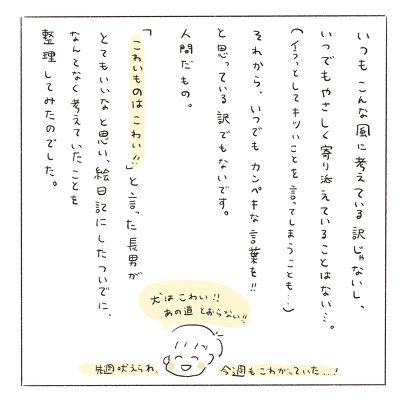 いつもこんな風に考えている訳じゃないし、
いつでもやさしく寄り添えていることはない…。
(イラっとしてキツいことを言ってしまうことも…)
それから、いつでもカンペキな言葉を!!
と思っている訳でもないです。
人間だもの。
「こわいものはこわい!!」と言った長男が
とてもいいなと思い、絵日記にしたついでに、
なんとなく考えていたことを
整理してみたのでした。
犬はこわい!!
あの道とおらない!!
先週吠えられ、
今週もこわがっていた…!